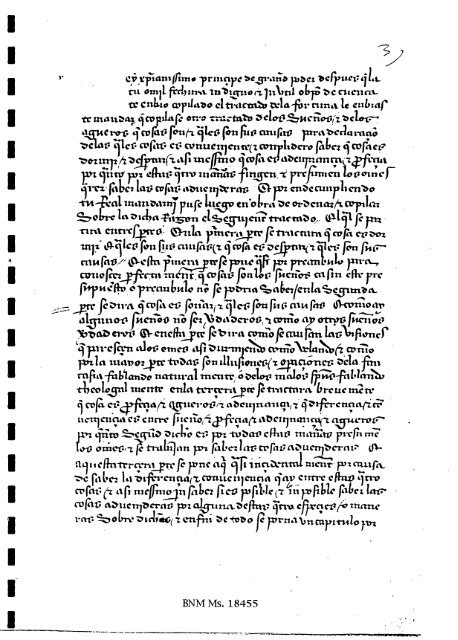 3,
ey xp̃ianissimo principe de grand poder despues q̃ la
tu omil fechura indigno & inutil obpõ de cuenca
te enbio copilado el tractado de la fortuna le enbias
te mandar q̃ copilase otro tractado de los Sueños & de los
agueros q̃ cosas son & q̃les son sus causas para declaraçiõ
de las q̃les cosas es conueniente & conplidero saber q̃ cosa es
dormir & despertar & asi messimo q̃ cosa es adeuinança & p̃feçia
por q̃nto por estas q̃tro maneras fingen & presumen los omes
q̃rer saber las cosas aduenideras E por ende cunpliendo
tu Real mandamj̃ puse luego en obra de ordenar & copilar
Sobre la dicha Razon el Seguiente tractado El q̃l se par
tira en tres p̃tes En la p̃mera p̃te se tractara q̃ cosa es dor
mir & q̃les son sus causas & q̃ cosa es despertar & q̃les son sus
causas E esta p̃mera p̃te se pone q̃si por preanbulo para
conosçer p̃fecta ment̃ q̃ cosas son los sueños ca sin este pre
supuesto o preanbulo no se podria Saber en la Segunda
p̃te se dira q̃ cosa es soñar & q̃les son sus causas E como ay
algunos sueños no ser Vdaderos & como ay otros sueños
Vdaderos E en esta p̃te se dira como se causan las visiones
q̃ paresçen a los omes asi durmiendo como velando & como
por la mayor p̃te todas son illusiones & operaçiones de la fan
tasia fablando natural mente o de los malos sp̃us fablando
theologal mente en la terçera p̃te se tractara breue mẽte
q̃ cosa es p̃feçia & agueros & adeuinança & q̃ diferençia & cõ
ueniençia es entre sueño & p̃feçia & adeuinança & agueros
por q̃nto Segũd dicho es por todas estas maneras presumẽ
los omes & se trabajan por saber las cosas aduenideras E
aquesta terçera p̃te se pone aq̃ q̃si inçidental ment̃ por causa
de saber la diferençia & conueniençia q̃ ay entre estas q̃tro
cosas & asi messimo in saber si es posible & inposible saber las
cosas aduenideras por alguna destas q̃tro espeçies o mane
ras Sobre dichas & en fin de todo se porna vn capitulo por
BNM Ms. 18455